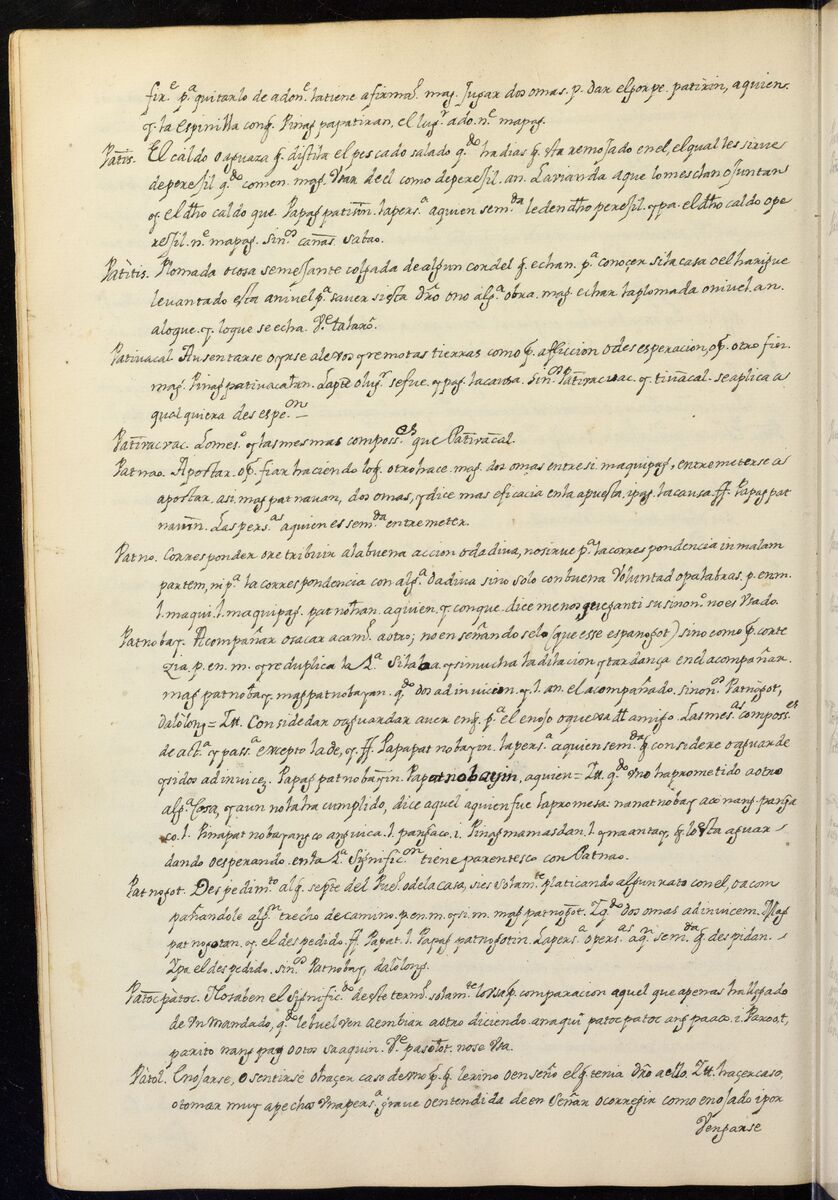 fir.e p.a quitarlo de adon.e la tiene afirmad.o mag. Jugar dos omas. p. dar el gorpe. patirin, aquien.
y. la espinilla conq. Pinag papatiran, el lug.r ado. n.e mapag.
Patis. El caldo o aguaza q. distila el pescado salado q.do ha dias q. esta remojado en el, el qual les sirve
de perejil q.do comen. mag. Usar de el como de perejil. an. La vianda a que lo mesclan o juntan
y el dho caldo que. Papag patiun. la pers.a a quien sem.da le den dho perejil. y pa. el dho caldo o pe
rejil. n.e mapag. sin.os canas. sabao.
Patitis. Plomada o cosa semejante colgada de algun cordel q. echan. p.a conoçer si la casa o el harigue
levantado esta a nivel p.a saver si esta dro o no alg.a obra. mag. echar la plomada o nivel. an.
a lo que. y. lo que se echa. V.e talaro.
Pativacal. Ausentarse o yrse a lexos y remotas tierras como p. affliccion o desesperacion, o p. otro fin.
mag. Pinag pativacalan. La pte o lug.r se fue. y pag. la causa. Sin.os Patiracrac. y tivacal. se aplica a
qualquiera desesp.on
Patiracrac. Lo mes.o y las mesmas composs.es que Pativacal.
Patnao. Apostar. o p. fiar haciendo lo q. otro hace. mag. dos omas entre si. maquipag, entremeterse a
apostar. asi. mag patnauan, dos omas, y dice mas eficacia en la apuesta, ipag. la causa. ff. Papag pat
nauin. Las pers.as a quienes sem.da entremeter.
Patno. Corresponder o retribuir a la buena accion o dadiva, no sirve p.a la correspondencia in malam
partem, ni p.a la correspondencia con alg.a dadiva sino solo con buena voluntad o palabras. p. en m.
l. maqui. l. maquipag. patnohan. a quien. y con que. dice menos que ganti su sinon.o no es usado.
Patnobay. Acompañar o sacar a cam.o a otro; no enseñandoselo (que esse es panogot) sino como p. corte
zia. p. en. m. y reduplica la 2.a silaba. y si mucha la dilacion y tardança en el acompañar.
mag patnobay. mag patnobayan. q.do dos ad invicem. y. l. an. el acompañado. sinon.os Patnogot,
dalolong = Itt. Considedar o aguardar aver en q. p.a el enojo o quexa dl amigo. Las mes.as composs.es
de act.a y pass.a excepto la de, y. ff. Papapatnobayin. la pers.a a quien sem.da q. considere o aguarde
y si dos ad invicẽ, Papag patnobayin. Papatnobayin, a quien = Itt. q.do uno ha prometido a otro
alg.a cosa, y aun no la ha cumplido, dice aquel a quien fue la promesa: nanatnobay aco nang pangã
co. l. Pinapatnobayan co ang uica. l. pangaco. i. Pinag mamasdan. l. ynaantay, q. lo esta aguar-
dando o esperando. en la 2.a signific.on tiene parentesco con Patnao.
Patnogot. Despedim.to al q. se pte del Pueb.o o de la casa, si es solam.te platicando algun rato con el, o acom
pañandole alg.n trecho de camino. p. en. m. y si. m. mag patnogot. I q.do dos omas ad invicem. Mag
patnogotan. y. el despedido. ff. Papat. l. Papag patnogotin. La pers.a o pers.as a q.n sem.da q. despidan.
I pa. el despedido. sin.os Patnobay, dalolong.
Patoc patoc. No saben el signific.do de este term.o solam.te lo usa p. comparacion aquel que apenas ha llegado
de un mandado, q.do le buelven a embiar a otro diciendo. anaqui patoc patoc ang paa co. i. Paroot,
parito nang pag ootos sa aquin. V.e pasotot. no se usa.
Patol. Enojarse, o sentirse o haçer caso de uno p. q. le riño o enseño el q. tenia dro a ello. Itt. haçer caso,
o tomar muy a pechos una pers.a grave o entendida de enseñar o corregir como enojado i por
Vengarse